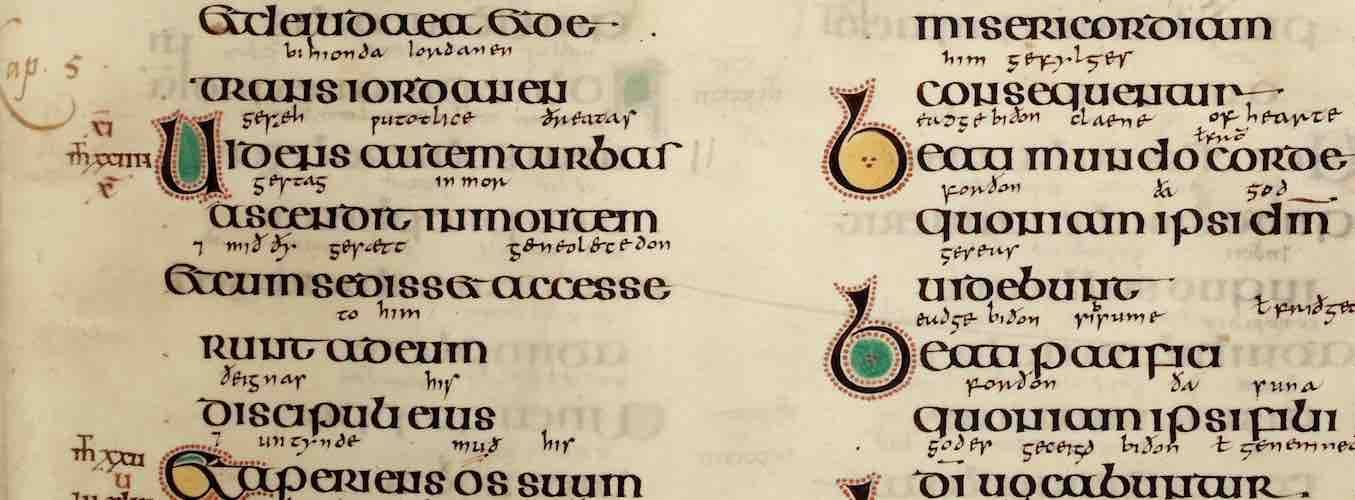 Et de iudaea et de
bihionda iordanen
trans iordanen
Cap. 5
geseh wutotlice ðreatas
Uidens autem turbas
gestag in mor
ascendit in montem
7 mið ðy gesætt geneolecedon
Et cum sedisset accesse
to him
runt ad eum
ðeignas his
discipuli eius
7 untynde muð his
Et aperiens os suum
misericordiam
him gefylges
consequentur
eadge biðon claene of hearte
Beati mundo corde
forðon ða god
quoniam ipsi dm̄
geseas
uidebunt
eadge biðon sibsume
Beati pacifici
forðon ða suna
quoniam ipsi filii
godes geceigd biðon ł genemned
di uocabuntur